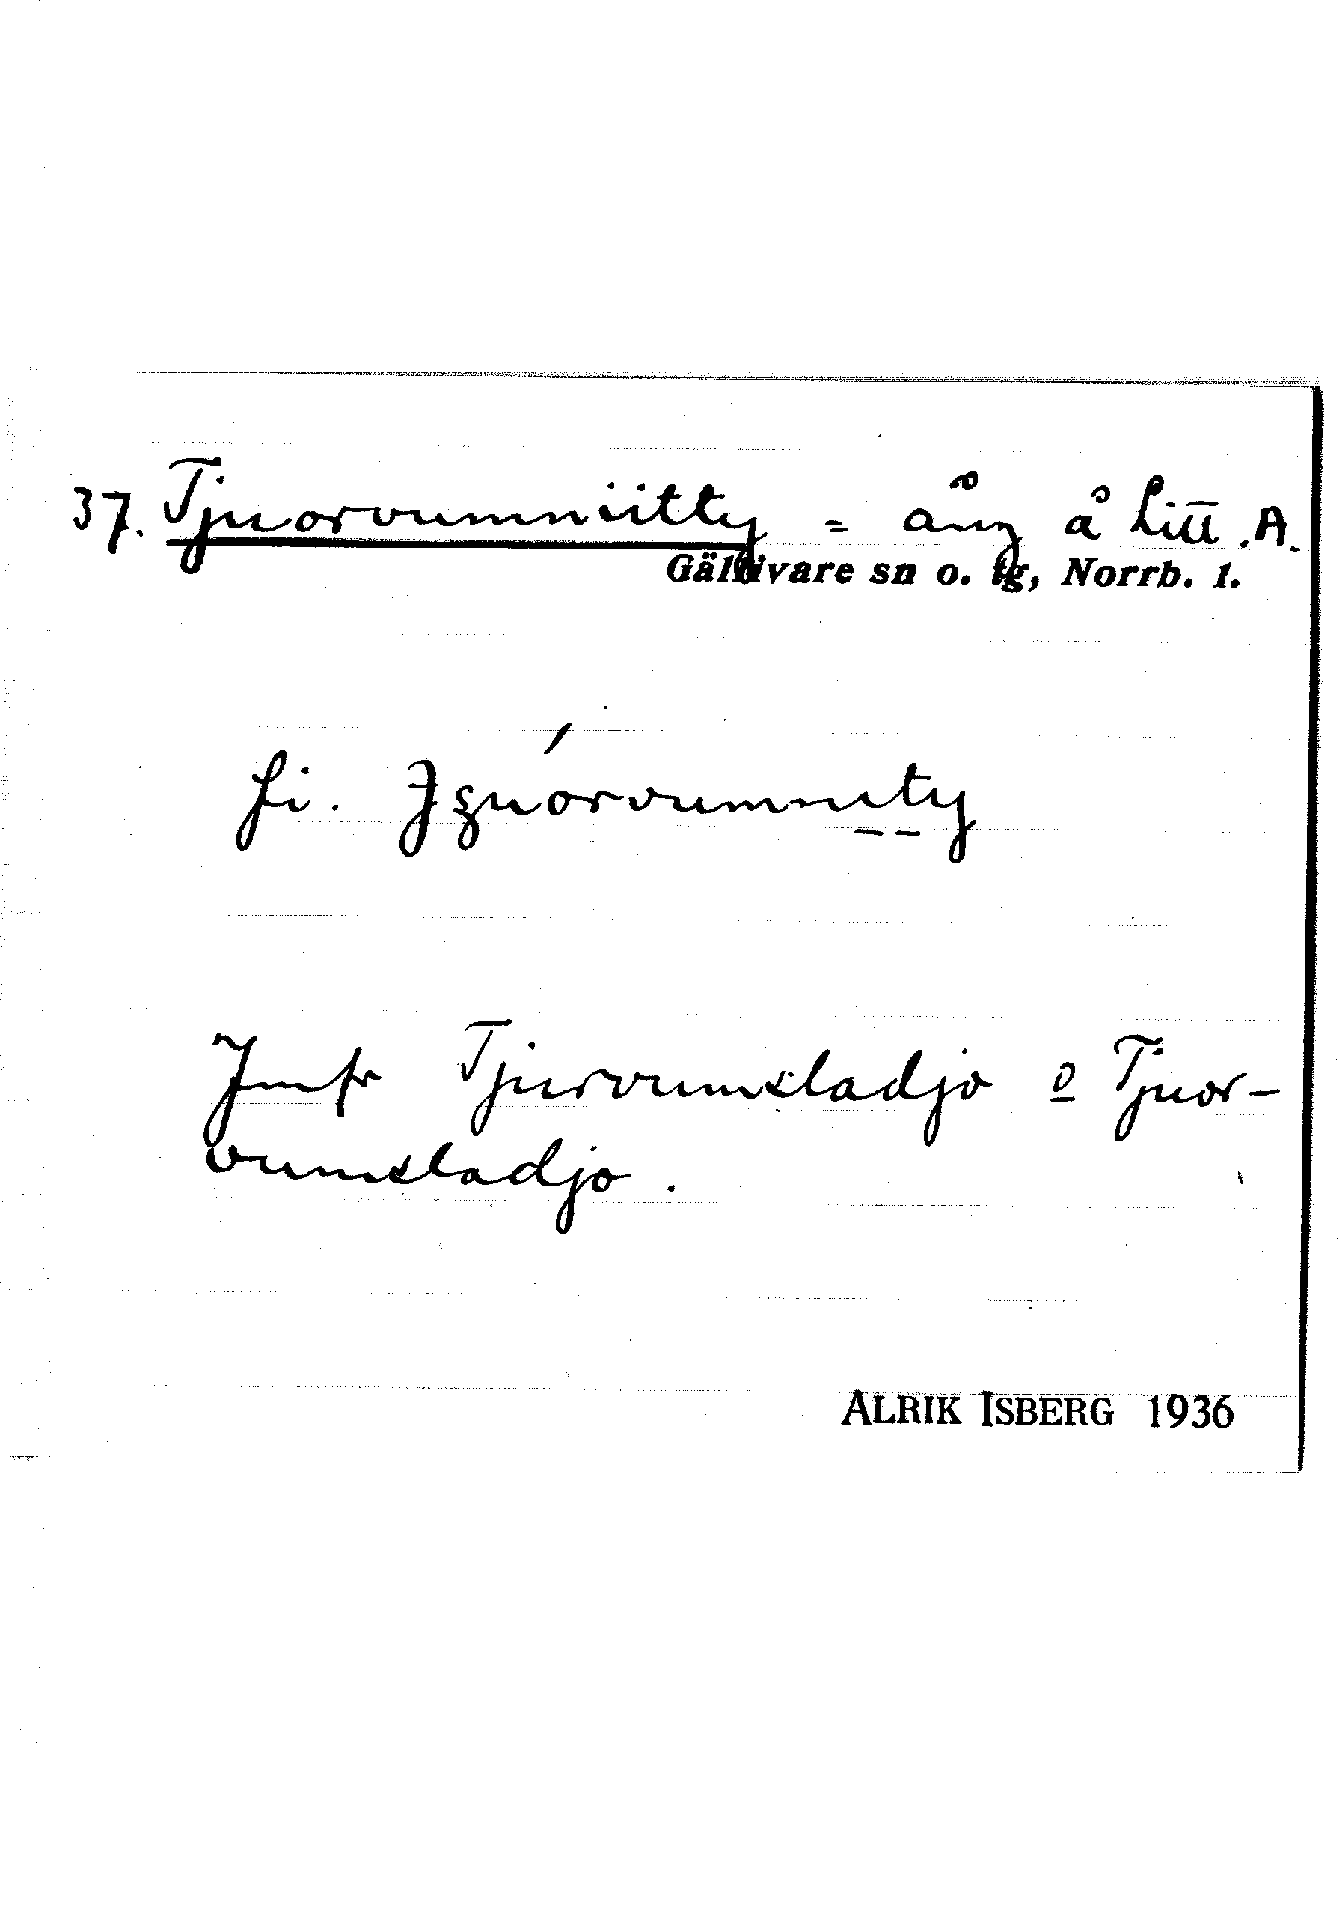 37. Tjuorvumniitty = äng å Litt. A.
Gällivare sn o. tg, Norrb. l.
fi.
Jmfr Tjurvumsladjo o Tjuor-
vumsladjo.
ALRIK ISBERG 1936